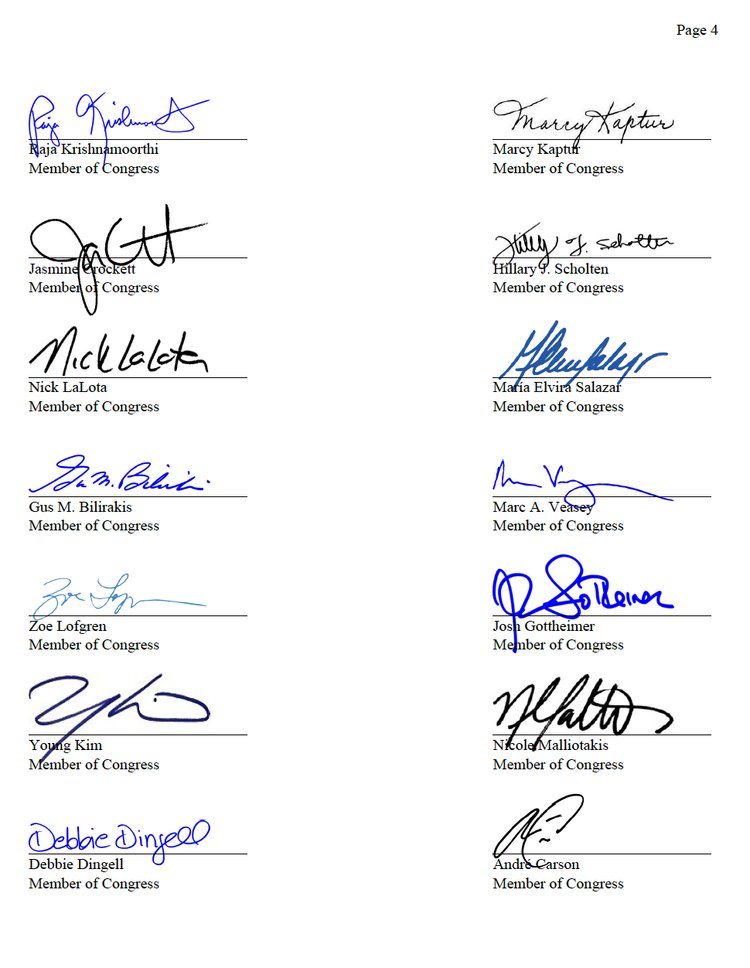 Page 4
Raja Krishnamoorthi
Raja Krishnamoorthi
Member of Congress
Marcy Kaptur
Marcy Kaptur
Member of Congress
Jasmine Crockett
Member of Congress
Hillary J. Scholten
Hillary J. Scholten
Member of Congress
Nick LaLota
Nick LaLota
Member of Congress
Maria Elvira Salazar
Member of Congress
Gus M. Bilirakis
Gus M. Bilirakis
Member of Congress
Marc A. Veasey
Member of Congress
Zoe Lofgren
Member of Congress
Gottheimer
Josh Gottheimer
Member of Congress
Young Kim
Member of Congress
Nicole Malliotakis
Member of Congress
Debbie Dingell
Debbie Dingell
Member of Congress
André Carson
Member of Congress